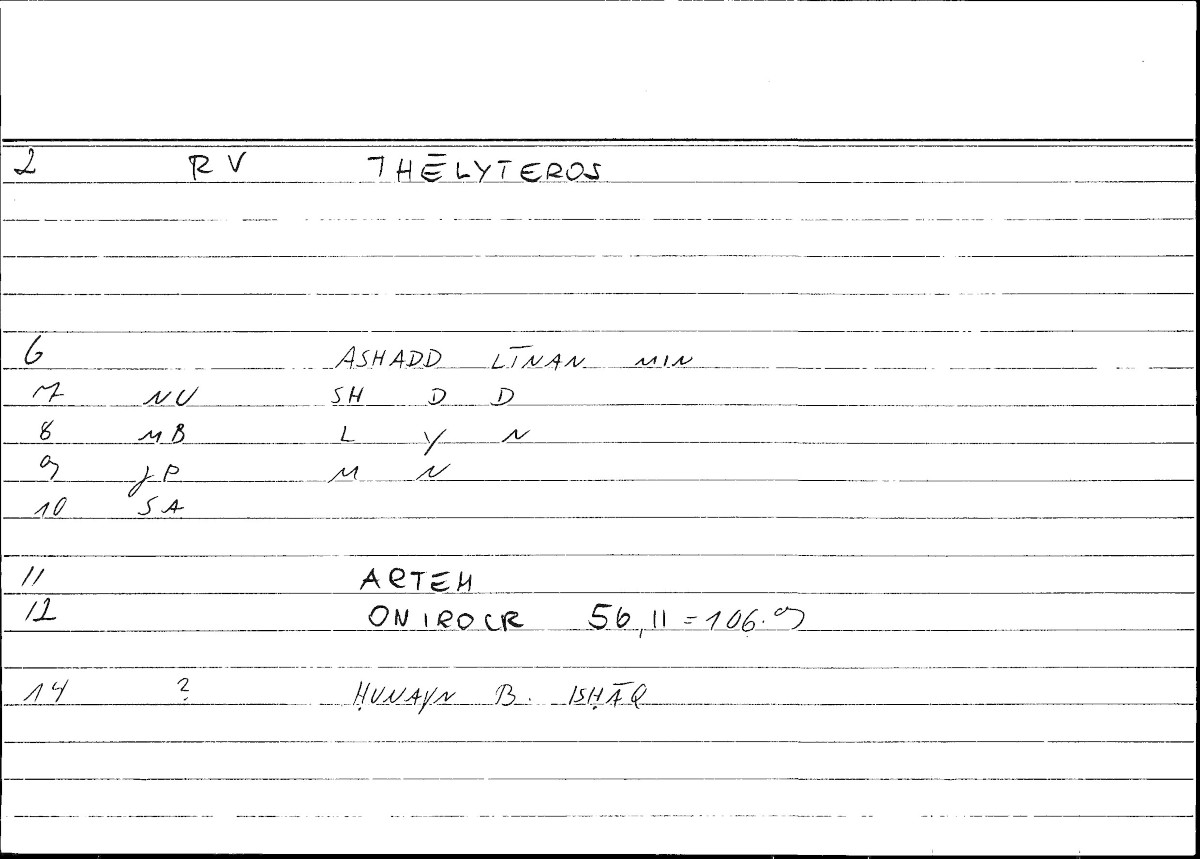 2 RV THĒLYTEROS
6 ASHADD LĪNAN MIN
7 NU SH D D
8 MB L Y N
9 JP M N
10 SA
11 ARTEM
12 ONIROCR 56,11 = 106.9
14 ? ḤUNAYN B. ISḤĀQ